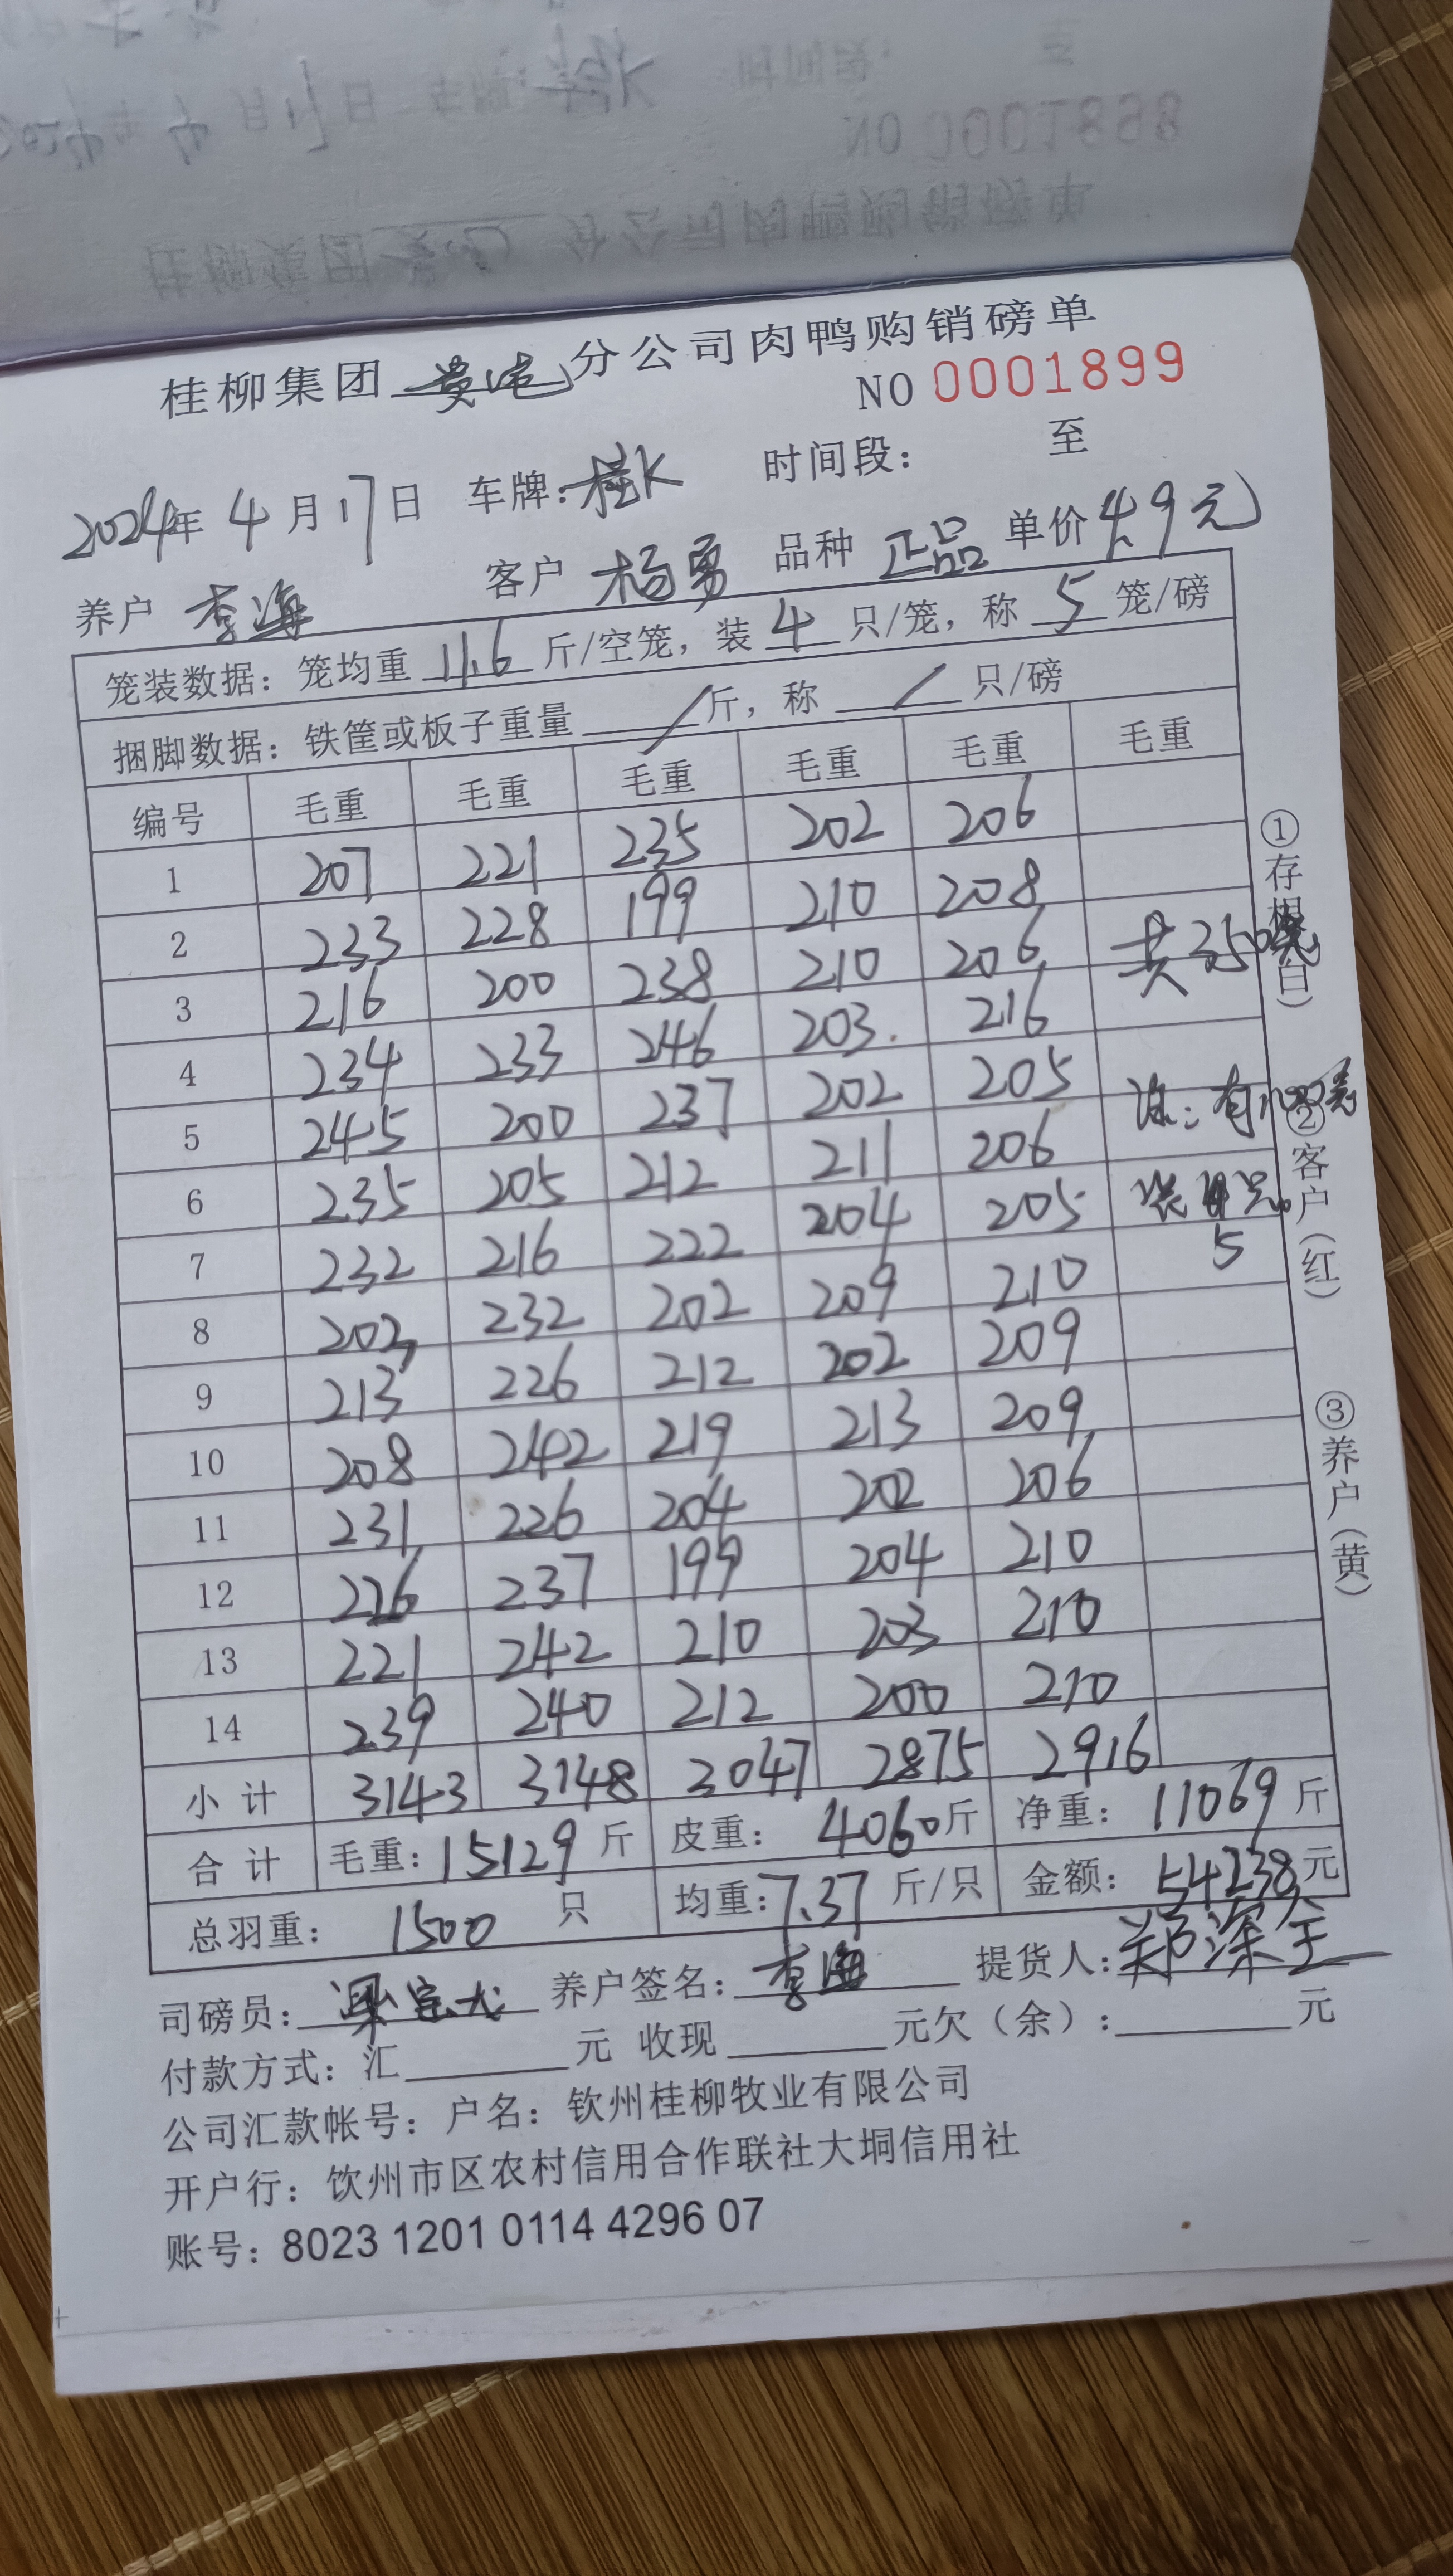 桂柳集团 贵港 分公司肉鸭购销磅单
NO 0001899
2024年 4 月 17 日 车牌: 桂K 时间段: 至
养户 李海 客户 杨勇 品种 正品 单价 4.9元
笼装数据: 笼均重 11.6 斤/空笼, 装 4 只/笼, 称 5 笼/磅
捆脚数据: 铁筐或板子重量 / 斤, 称 / 只/磅
编号 毛重 毛重 毛重 毛重 毛重 毛重
1 207 221 235 202 206
2 233 228 199 210 208
3 216 200 238 210 206 共350笼
4 234 233 246 203 216
5 245 200 237 202 205
6 235 205 212 211 206
7 232 216 222 204 205 5
8 202 232 202 209 210
9 213 226 212 202 209
10 208 242 219 213 209
11 231 226 204 202 206
12 226 237 199 204 210
13 221 242 210 203 210
14 239 240 212 200 210
小计 3143 3148 3047 2875 2916
合计 毛重: 15129 斤 皮重: 4060斤 净重: 11069 斤
总羽重: 1500 只 均重: 7.37 斤/只 金额: 54238元
司磅员: 养户签名: 李海 提货人: 郑深全
付款方式: 汇 元 收现 元欠(余): 元
公司汇款帐号: 户名: 钦州桂柳牧业有限公司
开户行: 饮州市区农村信用合作联社大垌信用社
账号: 8023 1201 0114 4296 07
①存根(白)
②客户(红)
③养户(黄)